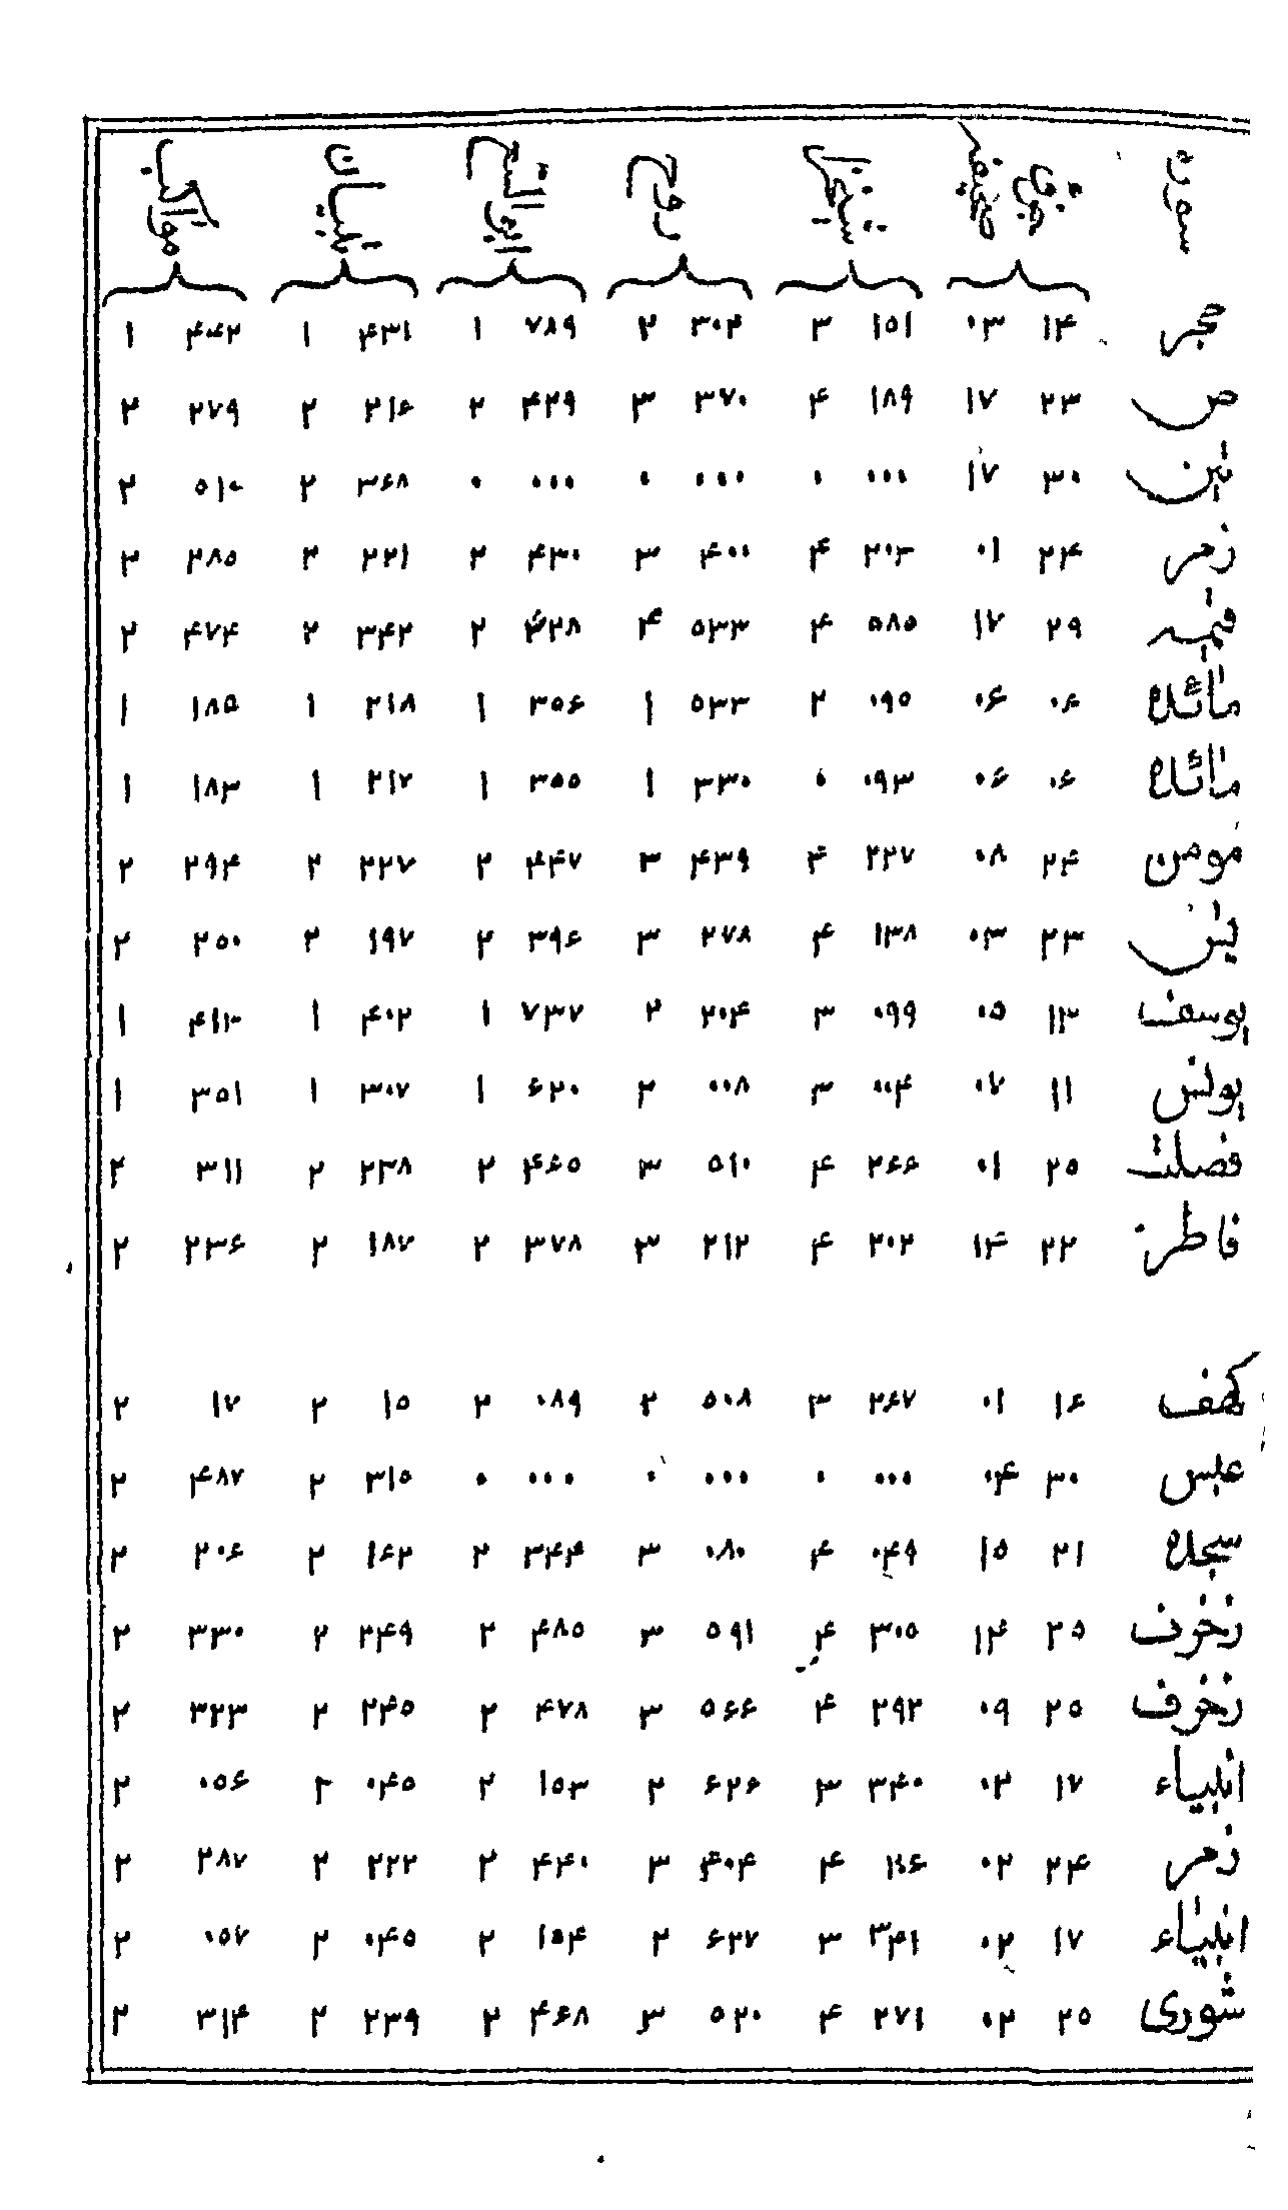 سوره جزو صفحه شیخ روح ابو السعود تبیان مواهب
حجر ۱۴ ۰۳ ۱۵۱ ۳ ۳۰۴ ۲ ۷۸۹ ۱ ۴۳۱ ۱ ۴۴۲ ۱
ص ۲۳ ۱۷ ۱۸۹ ۴ ۳۷۰ ۳ ۴۲۹ ۲ ۲۱۶ ۲ ۲۷۹ ۲
تین ۳۰ ۱۷ ۰۰۰ ۰ ۰۰۰ ۰ ۰۰۰ ۰ ۳۶۸ ۲ ۵۱۰ ۲
زمر ۲۴ ۰۱ ۲۰۳ ۴ ۴۰۰ ۳ ۴۳۰ ۲ ۲۲۱ ۲ ۲۸۵ ۲
قیمه ۲۹ ۱۷ ۵۸۵ ۴ ۵۳۳ ۴ ۲ ۳۴۲ ۲ ۴۷۴ ۲
مائده ۰۶ ۰۶ ۰۹۵ ۲ ۵۳۳ ۱ ۳۵۶ ۱ ۲۱۸ ۱ ۱۸۵ ۱
مائده ۰۶ ۰۶ ۰۹۳ ۰ ۳۳۰ ۱ ۳۵۵ ۱ ۲۱۷ ۱ ۱۸۳ ۱
مومن ۲۴ ۰۸ ۲۲۷ ۴ ۴۳۹ ۳ ۴۴۷ ۲ ۲۲۷ ۲ ۲۹۴ ۲
یس ۲۳ ۰۳ ۱۳۸ ۴ ۲۷۸ ۳ ۳۹۶ ۲ ۱۹۷ ۲ ۲۵۰ ۲
یوسف ۱۳ ۰۵ ۰۹۹ ۳ ۲۰۴ ۲ ۷۳۷ ۱ ۴۰۲ ۱ ۴۱۳ ۱
یونس ۱۱ ۰۷ ۰۰۴ ۳ ۰۰۸ ۲ ۶۲۰ ۱ ۳۰۷ ۱ ۳۵۱ ۱
فصلت ۲۵ ۰۱ ۲۶۶ ۴ ۵۱۰ ۳ ۴۶۵ ۲ ۲۳۸ ۲ ۳۱۱ ۲
فاطر ۲۲ ۱۴ ۲۰۲ ۴ ۲۱۲ ۳ ۳۷۸ ۲ ۱۸۷ ۲ ۲۳۶ ۲
کهف ۱۶ ۰۱ ۲۶۷ ۳ ۵۰۸ ۲ ۰۸۹ ۲ ۱۵ ۲ ۱۷ ۲
عبس ۳۰ ۰۴ ۰۰۰ ۰ ۰۰۰ ۰ ۰۰۰ ۰ ۳۱۵ ۲ ۴۸۷ ۲
سجده ۲۱ ۱۵ ۰۴۹ ۴ ۰۸۰ ۳ ۳۴۴ ۲ ۱۶۲ ۲ ۲۰۶ ۲
زخرف ۲۵ ۱۴ ۳۰۵ ۴ ۵۹۱ ۳ ۴۸۵ ۲ ۲۴۹ ۲ ۳۳۰ ۲
زخرف ۲۵ ۰۹ ۲۹۲ ۴ ۵۶۶ ۳ ۴۷۸ ۲ ۲۴۵ ۲ ۳۲۳ ۲
انبیاء ۱۷ ۰۲ ۳۴۰ ۳ ۶۲۶ ۲ ۱۵۳ ۲ ۰۴۵ ۲ ۰۵۶ ۲
زمر ۲۴ ۰۲ ۴ ۴۰۴ ۳ ۴۴۰ ۲ ۲۲۲ ۲ ۲۸۷ ۲
انبیاء ۱۷ ۰۲ ۳۴۱ ۳ ۶۲۷ ۲ ۱۵۴ ۲ ۰۴۵ ۲ ۰۵۷ ۲
شوری ۲۵ ۰۲ ۲۷۱ ۴ ۵۲۰ ۳ ۴۶۸ ۲ ۲۳۹ ۲ ۳۱۴ ۲